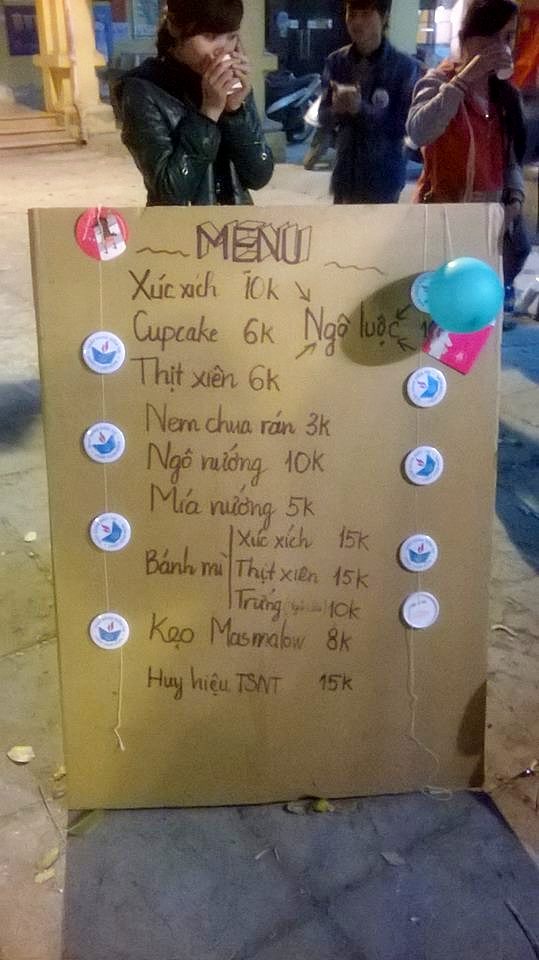 MENU
Xúc xích 10k
Cupcake 6k
Ngô luộc
Thịt xiên 6k
Nem chua rán 3k
Ngô nướng 10k
Mía nướng 5k
Bánh mì
Xúc xích 15k
Thịt xiên 15k
Trứng 10k
Kẹo Masmalow 8k
Huy hiệu TSNT 15k